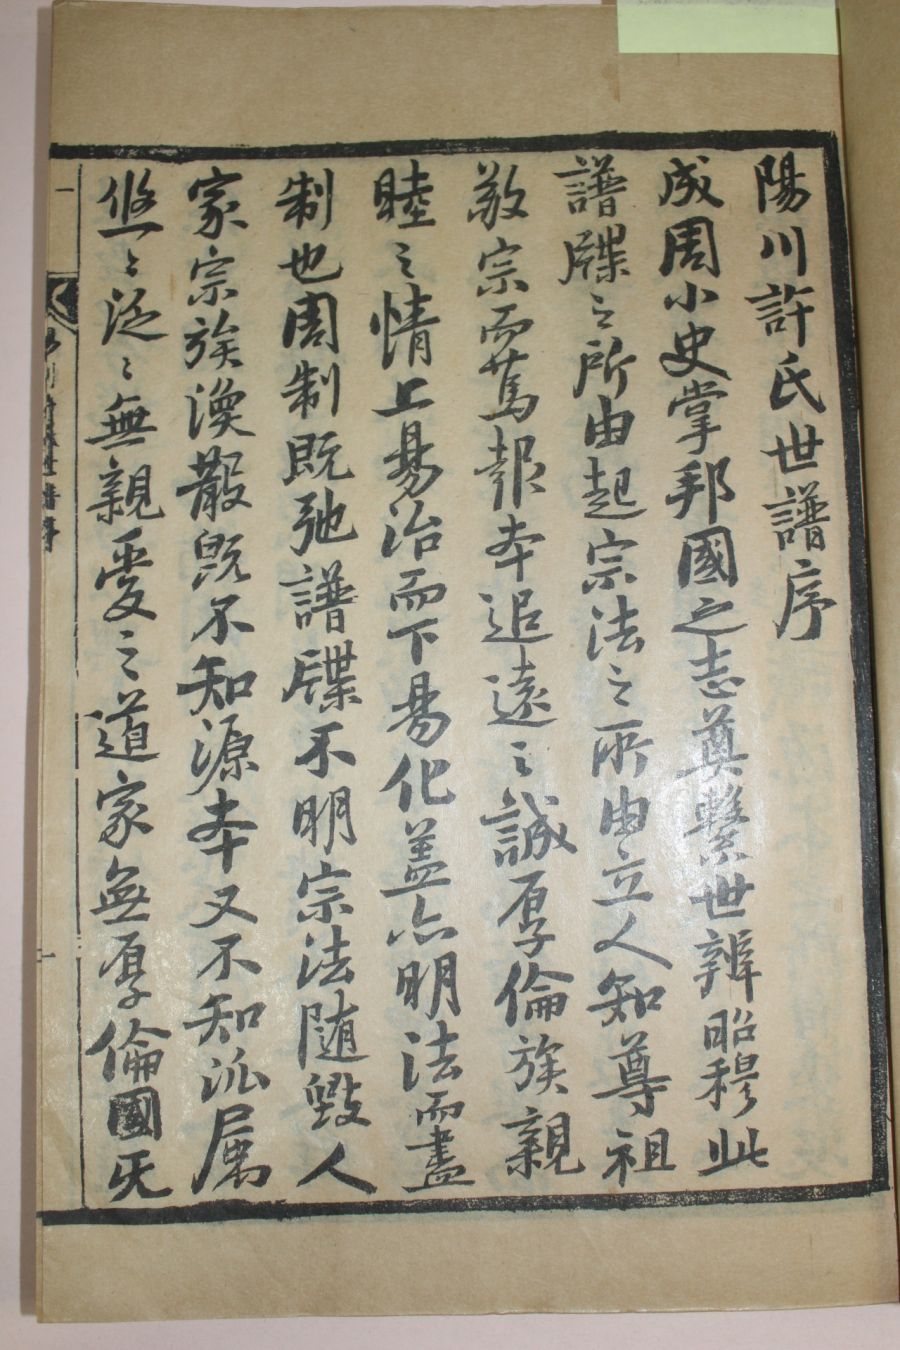 陽川許氏世譜序
成周小史掌邦國之志奠繫世辨昭穆此
譜牒之所由起宗法之所由立人知尊祖
敬宗而篤報本追遠之誠厚倫族親
睦之情上易治而下易化盖亦明法而盡
制也周制既弛譜牒不明宗法随毀人
家宗族渙散既不知源本又不知派属
悠〻泛〻無親愛之道家無厚倫國无